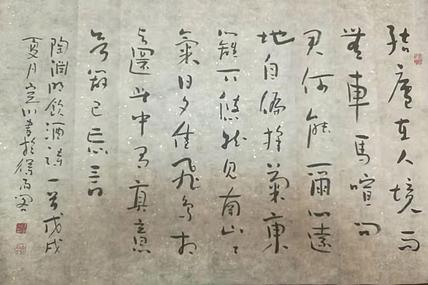 结庐在人境而
無車馬喧问
君何能爾心遠
地自偏採菊東
籬下悠然见南山山
氣日夕佳飛鸟相
与還此中有真意
欲辨已忘言
陶渊明飲酒詩一首戊戌
夏月